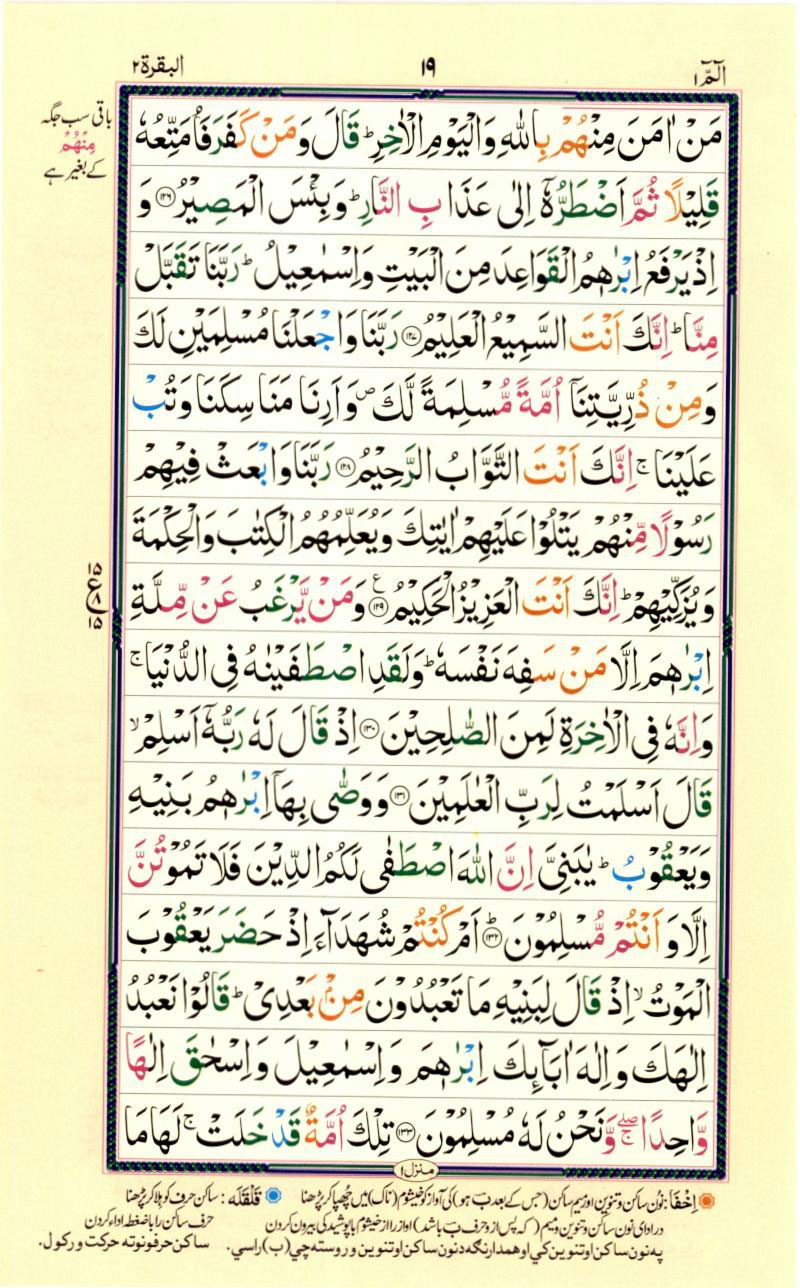 الٓمّٓ ١
١٩
البقرة ٢
باقی سب جگہ
مِنْهُمْ
کے بغیر ہے
مَنْ اٰمَنَ مِنْهُمْ بِاللّٰهِ وَالْيَوْمِ الْاٰخِرِ ؕ قَالَ وَمَنْ كَفَرَ فَاُمَتِّعُهٗ
قَلِيْلًا ثُمَّ اَضْطَرُّهٗۤ اِلٰى عَذَابِ النَّارِ ؕ وَبِئْسَ الْمَصِيْرُ ﴿۱۲۶﴾ وَ
اِذْ يَرْفَعُ اِبْرٰهٖمُ الْقَوَاعِدَ مِنَ الْبَيْتِ وَاِسْمٰعِيْلُ ؕ رَبَّنَا تَقَبَّلْ
مِنَّا ؕ اِنَّكَ اَنْتَ السَّمِيْعُ الْعَلِيْمُ ﴿۱۲۷﴾ رَبَّنَا وَاجْعَلْنَا مُسْلِمَيْنِ لَكَ
وَمِنْ ذُرِّيَّتِنَاۤ اُمَّةً مُّسْلِمَةً لَّكَ ۪ وَاَرِنَا مَنَاسِكَنَا وَتُبْ
عَلَيْنَا ۚ اِنَّكَ اَنْتَ التَّوَّابُ الرَّحِيْمُ ﴿۱۲۸﴾ رَبَّنَا وَابْعَثْ فِيْهِمْ
رَسُوْلًا مِّنْهُمْ يَتْلُوْا عَلَيْهِمْ اٰيٰتِكَ وَيُعَلِّمُهُمُ الْكِتٰبَ وَالْحِكْمَةَ
وَيُزَكِّيْهِمْ ؕ اِنَّكَ اَنْتَ الْعَزِيْزُ الْحَكِيْمُ ﴿۱۲۹﴾ ع وَمَنْ يَّرْغَبُ عَنْ مِّلَّةِ
۱۵ ع ۸ ۱۵
اِبْرٰهٖمَ اِلَّا مَنْ سَفِهَ نَفْسَهٗ ؕ وَلَقَدِ اصْطَفَيْنٰهُ فِى الدُّنْيَا ۚ
وَاِنَّهٗ فِى الْاٰخِرَةِ لَمِنَ الصّٰلِحِيْنَ ﴿۱۳۰﴾ اِذْ قَالَ لَهٗ رَبُّهٗۤ اَسْلِمْ ۙ
قَالَ اَسْلَمْتُ لِرَبِّ الْعٰلَمِيْنَ ﴿۱۳۱﴾ وَوَصّٰى بِهَاۤ اِبْرٰهٖمُ بَنِيْهِ
وَيَعْقُوْبُ ؕ يٰبَنِىَّ اِنَّ اللّٰهَ اصْطَفٰى لَكُمُ الدِّيْنَ فَلَا تَمُوْتُنَّ
اِلَّا وَاَنْتُمْ مُّسْلِمُوْنَ ﴿۱۳۲﴾ ؕ اَمْ كُنْتُمْ شُهَدَآءَ اِذْ حَضَرَ يَعْقُوْبَ
الْمَوْتُ ۙ اِذْ قَالَ لِبَنِيْهِ مَا تَعْبُدُوْنَ مِنْۢ بَعْدِىْ ؕ قَالُوْا نَعْبُدُ
اِلٰهَكَ وَاِلٰهَ اٰبَآئِكَ اِبْرٰهٖمَ وَاِسْمٰعِيْلَ وَاِسْحٰقَ اِلٰهًا
وَّاحِدًا ۖۚ وَّنَحْنُ لَهٗ مُسْلِمُوْنَ ﴿۱۳۳﴾ تِلْكَ اُمَّةٌ قَدْ خَلَتْ ۚ لَهَا مَا
منزل ١
اِخْفَا: نُون ساکن و تنوین اور میم ساکن (جس کے بعد بَ ہو) کی آواز کو خیشوم (ناک) میں چُھپا کر پڑھنا
قَلْقَلَه: ساکن حرف کو ہلا کر پڑھنا
در ادای نون ساکن و تنوین و میم (که پس از و حرف بَ باشد) آواز را از خیشوم با پوشیدگی بیرون کردن
حرف ساکن را با ضغطه ادا کردن
په نون ساکن او تنوین کي او همدارنګه د نون ساکن او تنوین وروسته چي (ب) راسي.
ساکن حرفونو ته حرکت ورکول.